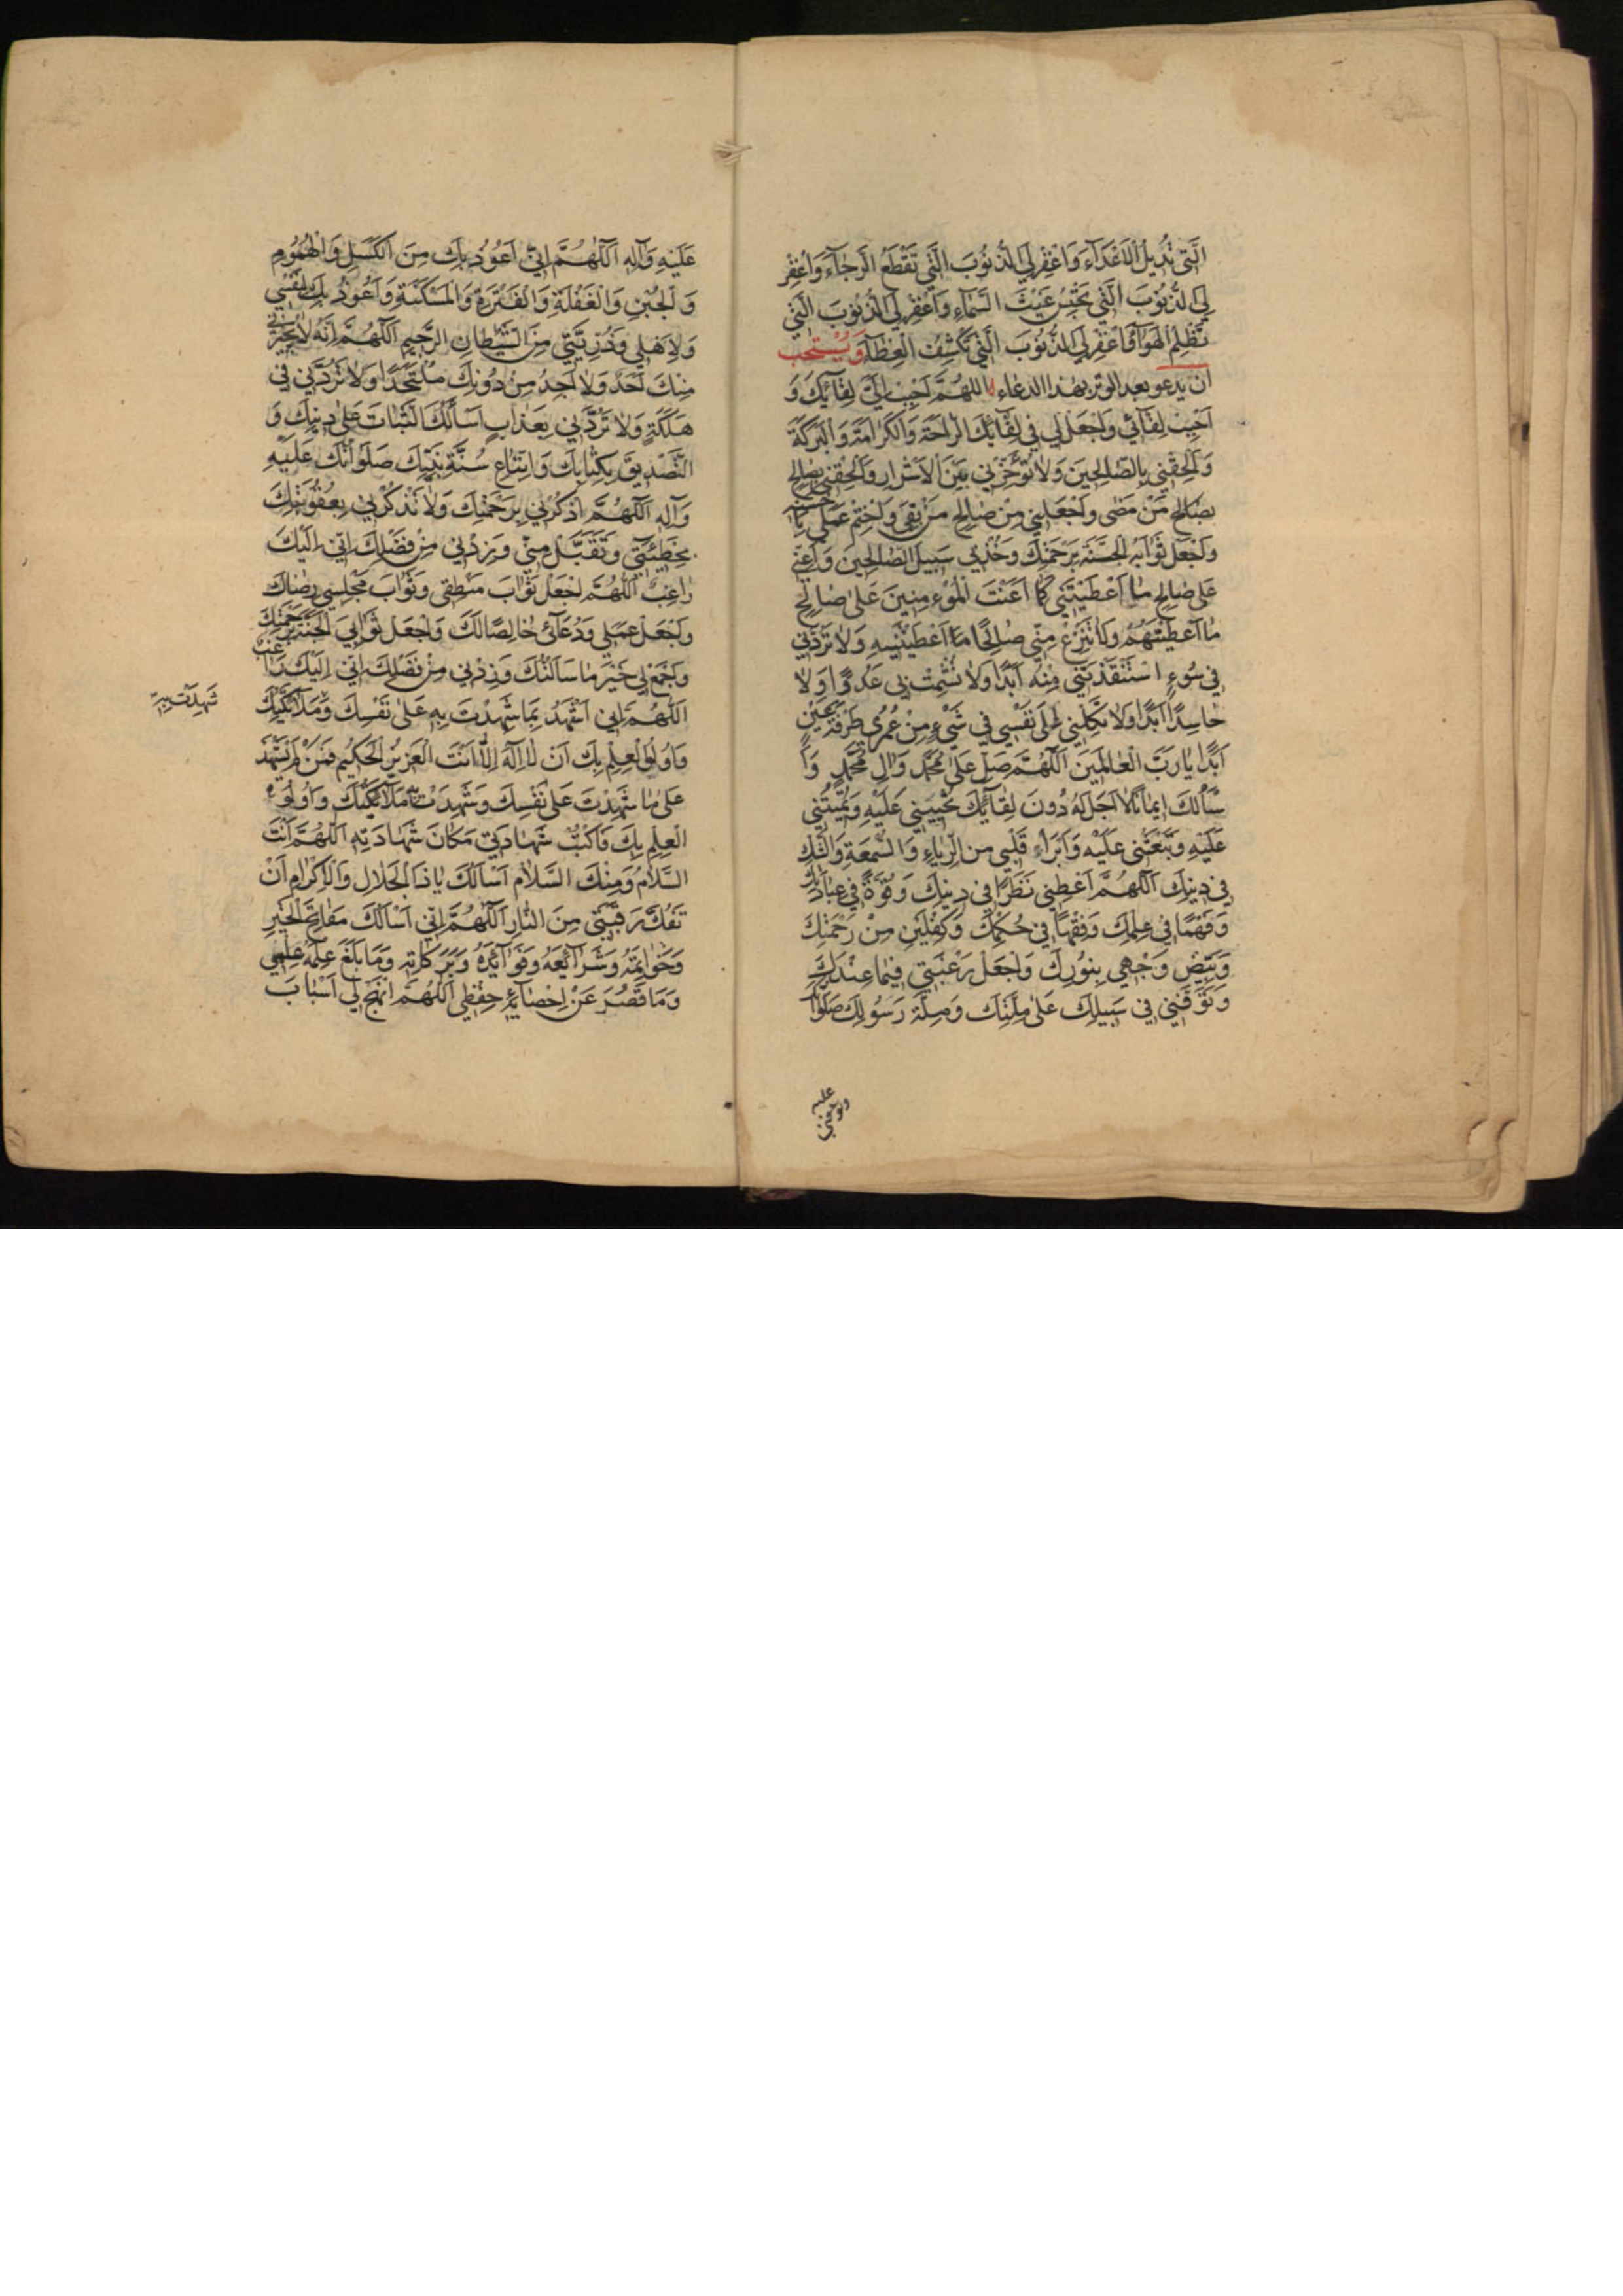 الَّتِي تُدِيلُ الْاَعْدَآءَ وَاغْفِرْ لِيَ الذُّنُوبَ الَّتِي تَقْطَعُ الرَّجٰآءَ وَاغْفِرْ
لِيَ الذُّنُوبَ الَّتِي تَحْبِسُ غَيْثَ السَّمٰآءِ وَاغْفِرْ لِيَ الذُّنُوبَ الَّتِي
تُظْلِمُ الْهَوٰآءَ وَاغْفِرْ لِيَ الذُّنُوبَ الَّتِي تَكْشِفُ الْغِطٰآءَ وَيُسْتَحَبُّ
ان يدعو بعد الوتر بهذا الدعاء اللهُمَّ اَحْبِبْ اِلَيَّ لِقٰآئَكَ وَ
اَحْبِبْ لِقٰآئِي وَاجْعَلْ لِي فِي لِقٰآئِكَ الرّٰاحَةَ وَالْكَرٰامَةَ وَالْبَرَكَةَ
وَاَلْحِقْنِي بِالصّٰالِحِينَ وَلٰا تُؤَخِّرْنِي بَيْنَ الْاَشْرٰارِ وَالْحِقْنِي بِصٰالِحِ
بِصٰالِحِ مَنْ مَضٰى وَاجْعَلْنِي مِنْ صٰالِحِ مَنْ بَقِيَ وَاخْتِمْ عَمَلِي بِاَحْسَنِهِ
وَاجْعَلْ ثَوٰابَهُ الْجَنَّةَ بِرَحْمَتِكَ وَخُذْ بِي سَبِيلَ الصّٰالِحِينَ وَاَعِنِّي
عَلٰى صٰالِحِ مٰا اَعْطَيْتَنِي كَمٰا اَعَنْتَ الْمُؤْمِنِينَ عَلٰى صٰالِحِ
مٰا اَعْطَيْتَهُمْ وَلٰا تَنْزِعْ مِنِّي صٰالِحًا مٰا اَعْطَيْتَنِيهِ وَلٰا تَرُدَّنِي
فِي سُوءٍ اسْتَنْقَذْتَنِي مِنْهُ اَبَدًا وَلٰا تُشْمِتْ بِي عَدُوًّا وَلٰا
حٰاسِدًا اَبَدًا وَلٰا تَكِلْنِي اِلٰى نَفْسِي فِي شَيْءٍ مِنْ عُمُرِي طَرْفَةَ عَيْنٍ
اَبَدًا يٰا رَبَّ الْعٰالَمِينَ اَللّٰهُمَّ صَلِّ عَلٰى مُحَمَّدٍ وَآلِ مُحَمَّدٍ وَاَ
سْأَلُكَ اِيمٰانًا لٰا اَجَلَ لَهُ دُونَ لِقٰآئِكَ تُحْيِيَنِي عَلَيْهِ وَتُمِيتُنِي
عَلَيْهِ وَتَبْعَثُنِي عَلَيْهِ وَاَبْرَاءِ قَلْبِي مِنَ الرِّيٰاءِ وَالسُّمْعَةِ وَالشَّكِّ
فِي دِينِكَ اَللّٰهُمَّ اَعْطِنِي نَظَرًا فِي دِينِكَ وَقُوَّةً فِي عِبٰادَتِكَ
وَفَهْمًا فِي عِلْمِكَ وَفِقْهًا فِي حُكْمِكَ وَكِفْلَيْنِ مِنْ رَحْمَتِكَ
وَبَيِّضْ وَجْهِي بِنُورِكَ وَاجْعَلْ رَغْبَتِي فِيمٰا عِنْدَكَ
وَتَوَفَّنِي فِي سَبِيلِكَ عَلٰى مِلَّتِكَ وَمِلَّةِ رَسُولِكَ صَلَوٰا
عليه
عَلَيْهِ وَآلِهِ اَللّٰهُمَّ اِنِّي اَعُوذُ بِكَ مِنَ الْكَسَلِ وَالْهُمُومِ
وَالْجُبْنِ وَالْغَفْلَةِ وَالْفَتْرَةِ وَالْمَسْكَنَةِ وَاَعُوذُ بِكَ لِنَفْسِي
وَلِاَهْلِي وَذُرِّيَّتِي مِنَ الشَّيْطٰانِ الرَّجِيمِ اَللّٰهُمَّ اِنَّهُ لٰا يُجِيرُنِي
مِنْكَ اَحَدٌ وَلٰا اَجِدُ مِنْ دُونِكَ مُلْتَحَدًا وَلٰا تَرُدَّنِي فِي
هَلَكَةٍ وَلٰا تَرُدَّنِي بِعَذٰابٍ اَسْأَلُكَ الثَّبٰاتَ عَلٰى دِينِكَ وَ
التَّصْدِيقَ بِكِتٰابِكَ وَاتِّبٰاعَ سُنَّةِ نَبِيِّكَ صَلَوٰاتُكَ عَلَيْهِ
وَآلِهِ اَللّٰهُمَّ اذْكُرْنِي بِرَحْمَتِكَ وَلٰا تَذْكُرْنِي بِعُقُوبَتِكَ
بِخَطِيئَتِي وَتَقَبَّلْ مِنِّي وَزِدْنِي مِنْ فَضْلِكَ اِنِّي اِلَيْكَ
رٰاغِبٌ اَللّٰهُمَّ اجْعَلْ ثَوٰابَ مَنْطِقِي وَثَوٰابَ مَجْلِسِي رِضٰاكَ
وَاجْعَلْ عَمَلِي وَدُعٰآئِي خٰالِصًا لَكَ وَاجْعَلْ ثَوٰابِيَ الْجَنَّةَ بِرَحْمَتِكَ
وَاجْمَعْ لِي خَيْرَ مٰا سَاَلْتُكَ وَزِدْنِي مِنْ فَضْلِكَ اِنِّي اِلَيْكَ رٰاغِبٌ
اَللّٰهُمَّ اِنِّي اَشْهَدُ بِمٰا شَهِدْتَ بِهِ عَلٰى نَفْسِكَ وَمَلٰآئِكَتِكَ
وَاُولُوا الْعِلْمِ بِكَ اَنْ لٰا اِلٰهَ اِلّٰا اَنْتَ الْعَزِيزُ الْحَكِيمُ فَمَنْ لَمْ يَشْهَدْ
عَلٰى مٰا شَهِدْتَ عَلٰى نَفْسِكَ وَشَهِدَتْ بِهِ مَلٰآئِكَتُكَ وَاُولُوا
الْعِلْمِ بِكَ فَاكْتُبْ شَهٰادَتِي مَكٰانَ شَهٰادَتِهِ اَللّٰهُمَّ اَنْتَ
السَّلٰامُ وَمِنْكَ السَّلٰام اَسْأَلُكَ يٰا ذَا الْجَلٰالِ وَالْاِكْرٰامِ اَنْ
تَفُكَّ رَقَبَتِي مِنَ النّٰارِ اَللّٰهُمَّ اِنِّي اَسْأَلُكَ مَفٰاتِحَ الْخَيْرِ
وَخَوٰاتِمَهُ وَشَرٰآئِعَهُ وَفَوٰآئِدَهُ وَبَرَكٰاتِهِ وَمٰا بَلَغَ عِلْمَهُ عِلْمِي
وَمٰا قَصُرَ عَنْ اِحْصٰآئِهِ حِفْظِي اَللّٰهُمَّ انْهَجْ لِي اَسْبٰابَ
شَهِدَتْ بِهِ